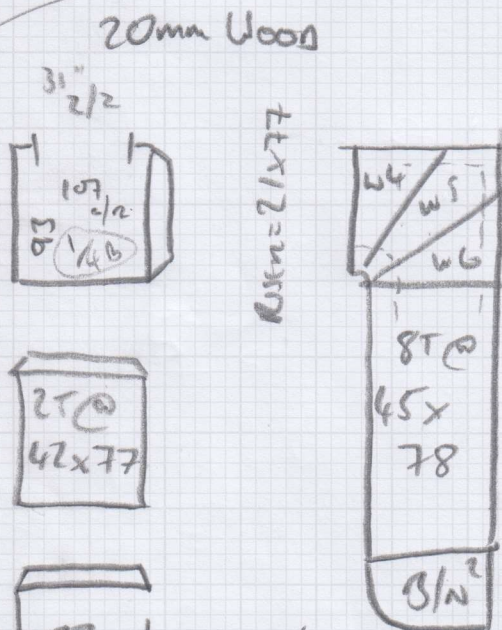 20mm Wood
31"
2/2
107
a/r
93
1/4 B
Riser = 21x77
W4
W5
W6
2T@
42x77
8T@
45x
78
B/N²